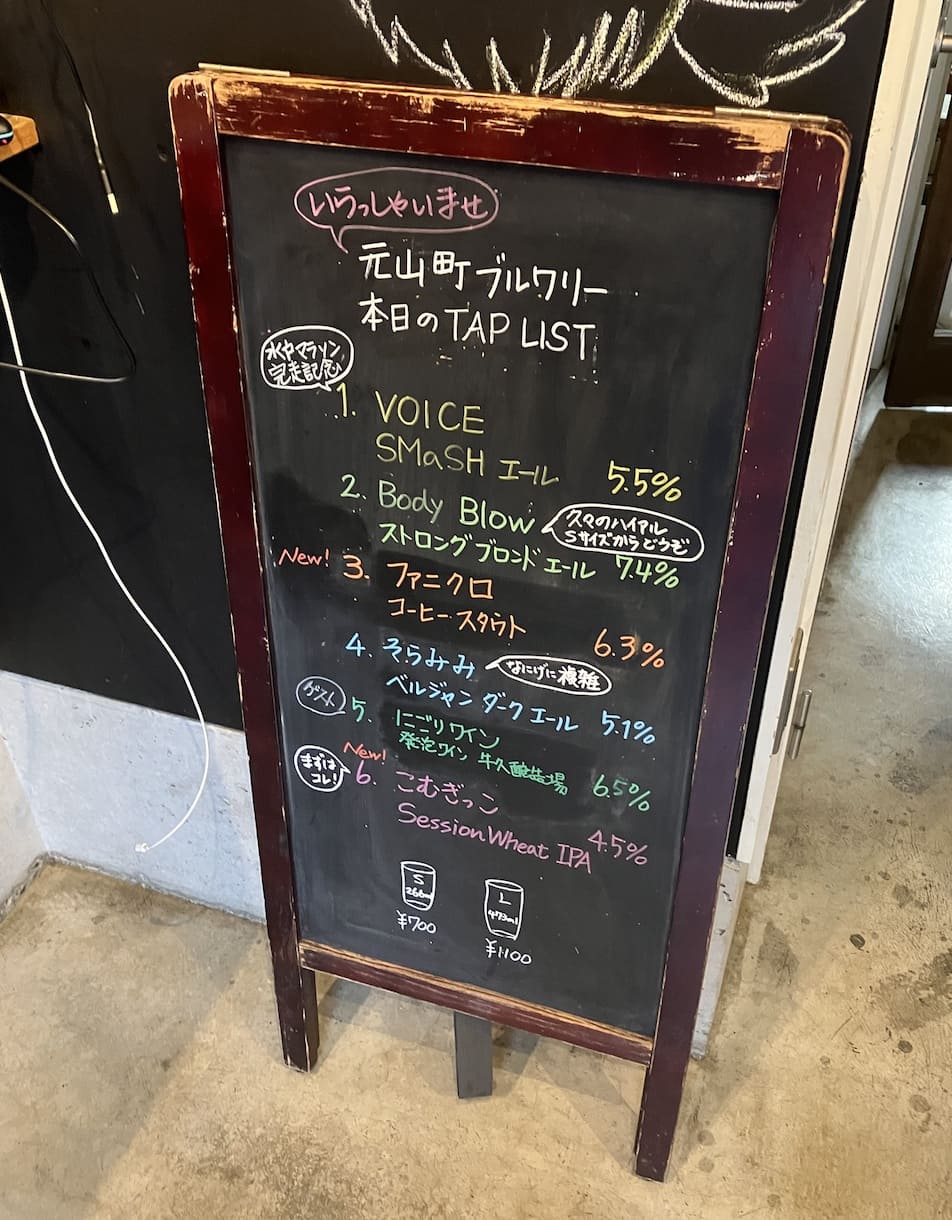 いらっしゃいませ
元山町ブルワリー
本日のTAP LIST
完走記念
1. VOICE
SMaSH エール 5.5%
2. Body Blow
久々のハイアル
Sサイズからどうぞ
ストロングブロンドエール 7.4%
New! 3. ファニクロ
コーヒースタウト 6.3%
4. そらみみ
なにげに複雑
ベルジャンダークエール 5.1%
ゲスト
5. にごりワイン
発泡ワイン 牛久醸造場 6.5%
New!
まずは
コレ!
6. こむぎっこ
Session Wheat IPA 4.5%
S
266ml
¥700
L
473ml
¥1100